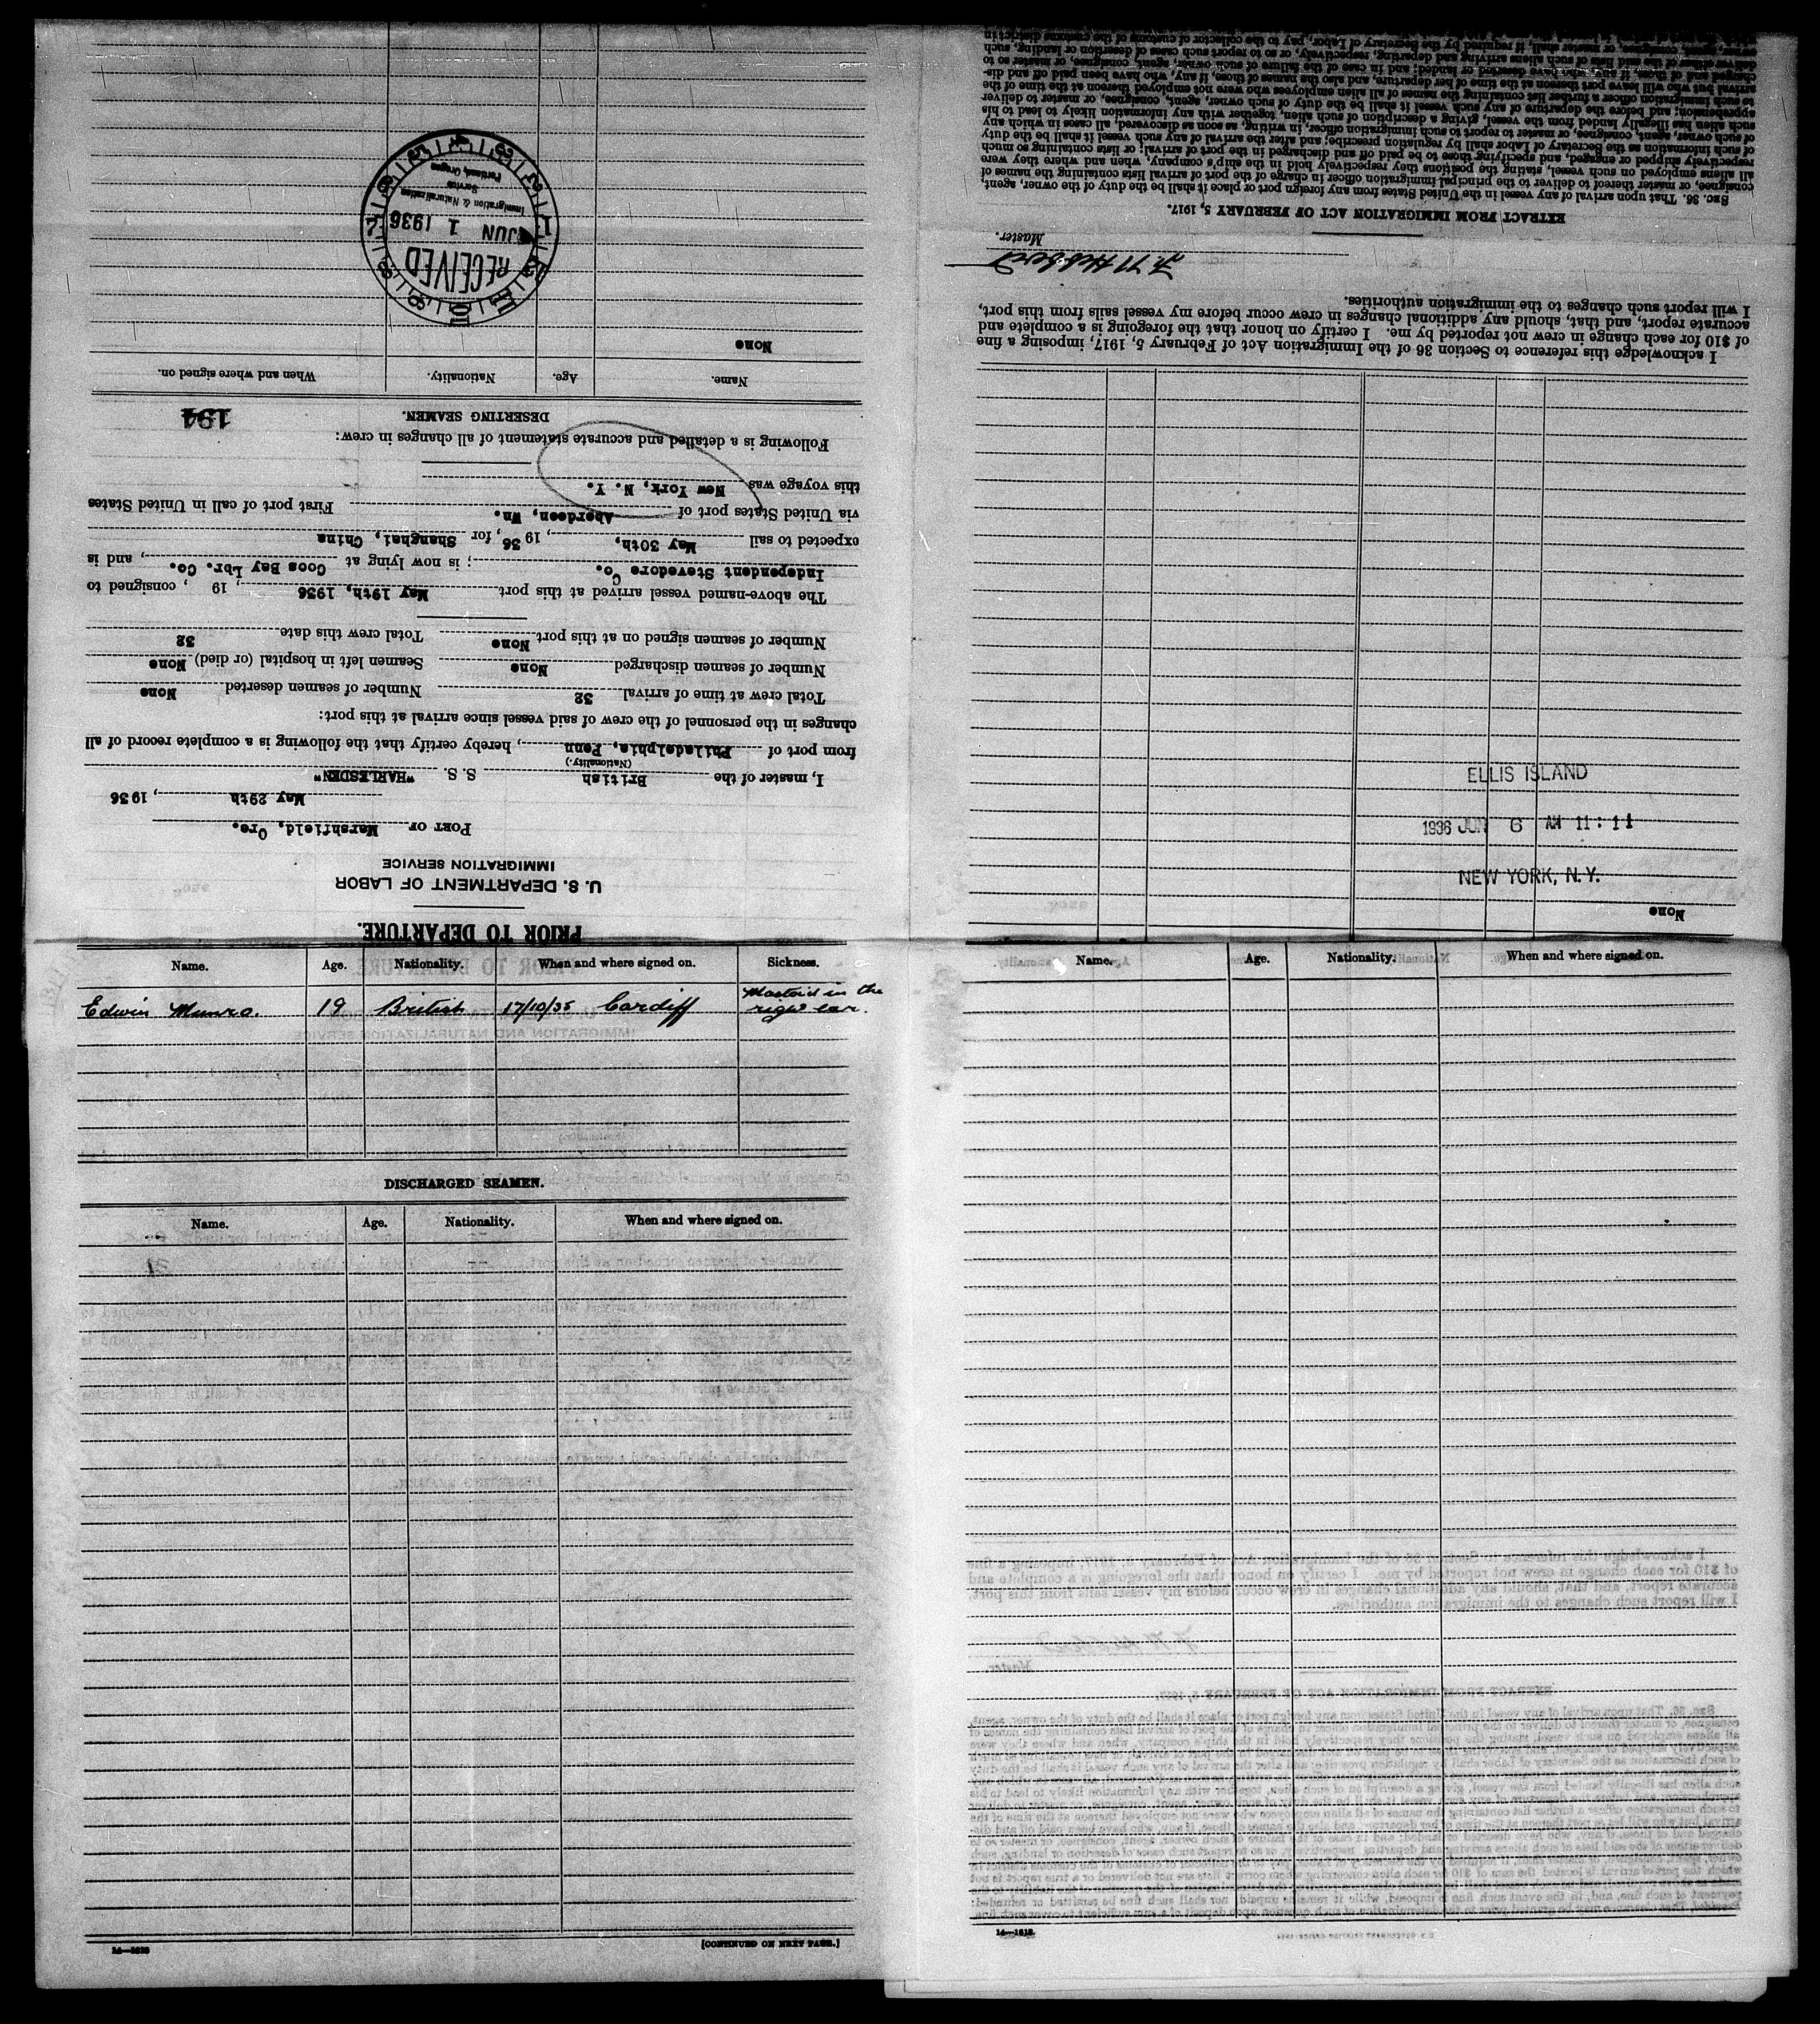 PRIOR TO DEPARTURE.
U. S. DEPARTMENT OF LABOR
IMMIGRATION SERVICE
PORT OF Marshfield, Ore.
May 29th, 1936
I, master of the British S. S. "HARLESDEN"
(Nationality.)
from port of Philadelphia, Penn, hereby certify that the following is a complete record of all
changes in the personnel of the crew of said vessel since arrival at this port:
Total crew at time of arrival 32 Number of seamen deserted None
Number of seamen discharged None Seamen left in hospital (or died) None
Number of seamen signed on at this port None Total crew this date 32
The above-named vessel arrived at this port May 19th, 1936, 19 , consigned to
Independent Stevedore Co. ; is now lying at Coos Bay Lbr. Co., and is
expected to sail May 30th, 1936, for Shanghai, China
via United States port of Aberdeen, Wn. First port of call in United States
this voyage was New York, N. Y.
Following is a detailed and accurate statement of all changes in crew:
DESERTING SEAMEN.
194
Name. Age. Nationality. When and where signed on.
None
RECEIVED
JUN 1 1936
Immigration & Naturalization
Service
Portland, Oregon
None
NEW YORK, N.Y.
1936 JUN 6 AM 11:11
ELLIS ISLAND
I acknowledge this reference to Section 36 of the Immigration Act of February 5, 1917, imposing a fine
of $10 for each change in crew not reported by me. I certify on honor that the foregoing is a complete and
accurate report, and that, should any additional changes in crew occur before my vessel sails from this port,
I will report such changes to the immigration authorities.
Master.
EXTRACT FROM IMMIGRATION ACT OF FEBRUARY 5, 1917.
SEC. 36. That upon arrival of any vessel in the United States from any foreign port or place it shall be the duty of the owner, agent,
consignee, or master thereof to deliver to the principal immigration officer in charge of the port of arrival lists containing the names of
all aliens employed on such vessel, stating the positions they respectively hold in the ship's company, when and where they were
respectively shipped or engaged, and specifying those to be paid off and discharged in the port of arrival; or lists containing so much
of such information as the Secretary of Labor shall by regulation prescribe; and after the arrival of any such vessel it shall be the duty
of such owner, agent, consignee, or master to report to such immigration officer, in writing, as soon as discovered, all cases in which any
such alien has illegally landed from the vessel, giving a description of such alien, together with any information likely to lead to his
apprehension; and before the departure of any such vessel it shall be the duty of such owner, agent, consignee, or master to deliver
to such immigration officer a further list containing the names of all alien employees who were not employed thereon at the time of the
arrival but who will leave port thereon at the time of her departure, and also the names of those, if any, who have been paid off and dis-
charged and of those, if any, who have deserted or landed; and in case of the failure of such owner, agent, consignee, or master so to
deliver either of the said lists of such aliens arriving and departing, respectively, or so to report such cases of desertion or landing, such
owner, agent, consignee, or master shall, if required by the Secretary of Labor, pay to the collector of customs of the customs district in
Name. Age. Nationality. When and where signed on. Sickness.
Edwin Munro. 19 British 17/10/35 Cardiff Mastoid in the
right ear.
DISCHARGED SEAMEN.
Name. Age. Nationality. When and where signed on.
[CONTINUED ON NEXT PAGE.]
Name. Age. Nationality. When and where signed on.